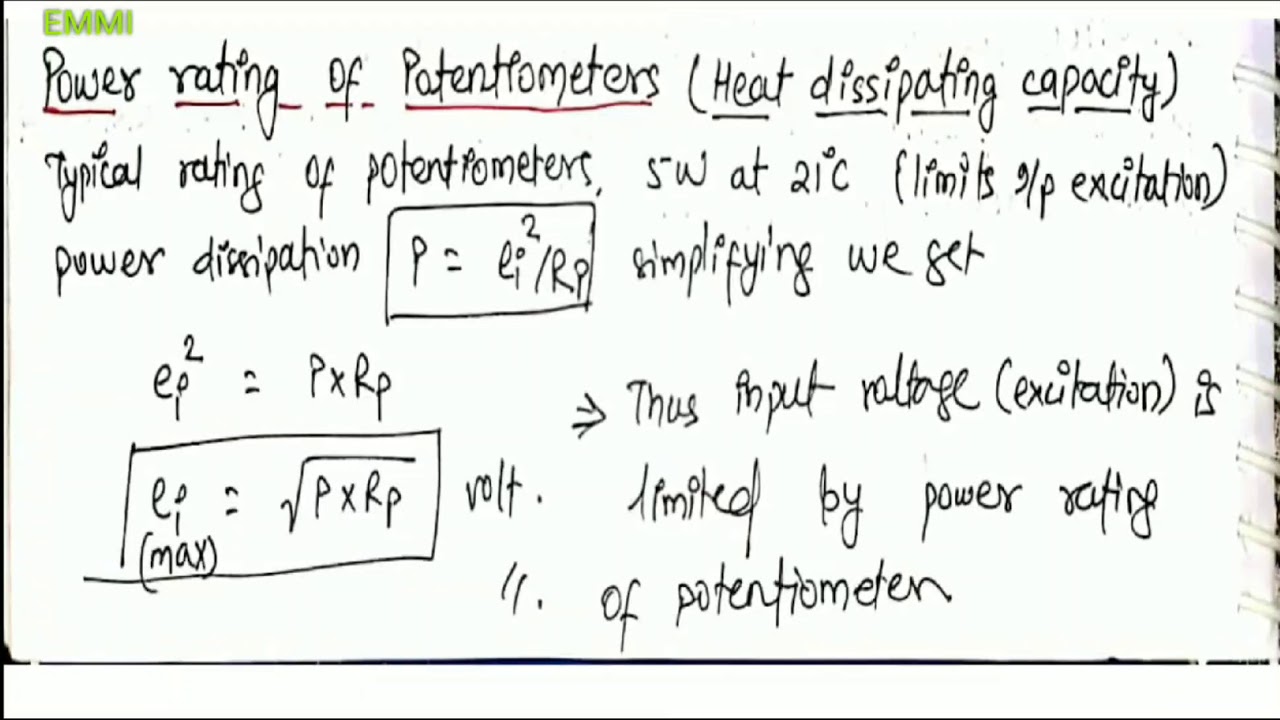 EMMI
Power rating of Potentiometers (Heat dissipating capacity)
Typical rating of potentiometers, 5-W at 21°C (limits i/p excitation)
power dissipation P = ei²/Rp simplifying we get
ei² = P x Rp
ei (max) = √P x Rp volt.
⇒ Thus input voltage (excitation) is
limited by power rating
//. of potentiometer.